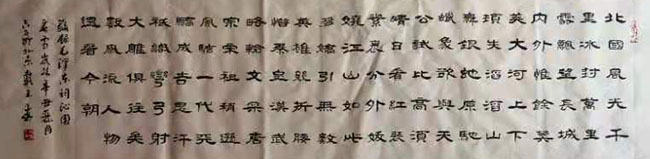 北國風光千
里冰封萬里
雪飄望長城
內外惟餘莽
莽大河上下
頓失滔滔山
舞銀蛇原馳
蠟象欲與天
公試比高須
晴日看紅裝
素裹分外妖
嬈江山如此
多嬌引無數
英雄競折腰
惜秦皇漢武
略輸文采唐
宗宋祖稍遜
風騷一代天
驕成吉思汗
祇識彎弓射
大雕俱往矣
數風流人物
還看今朝
錄毛澤東詞沁園
春雪歲辛丑月
於北京